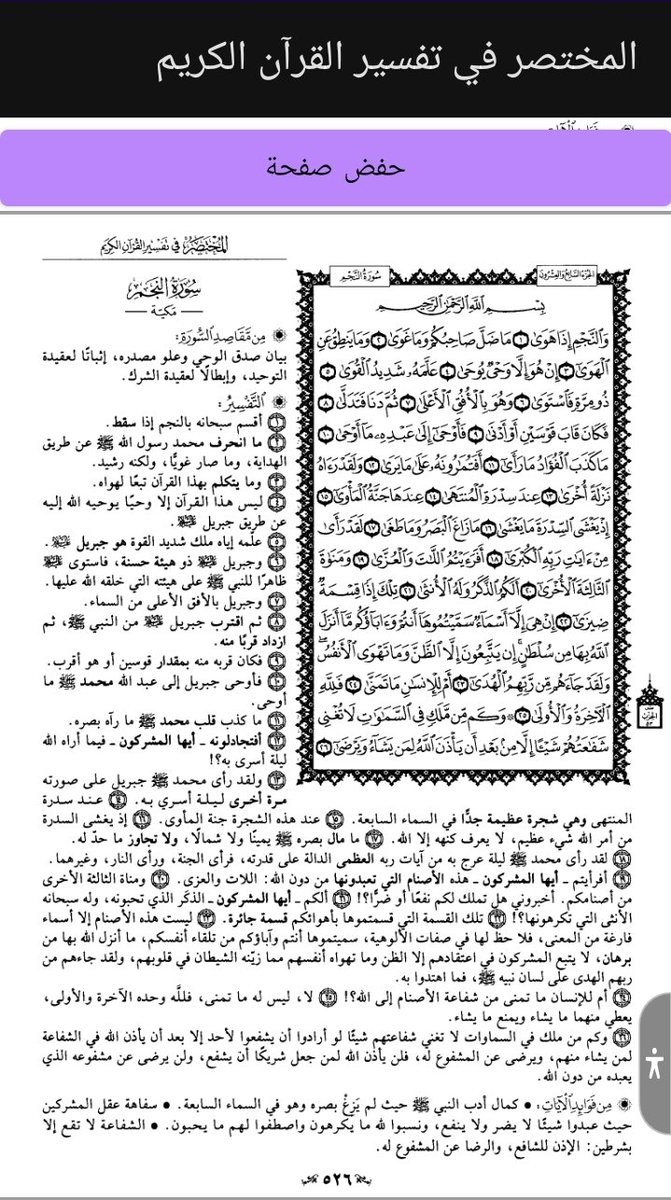 المختصر في تفسير القرآن الكريم
حفض صفحة
الجزء السابع والعشرون
سورة النجم
المختصر في تفسير القرآن الكريم
بِسْمِ ٱللَّهِ ٱلرَّحْمَٰنِ ٱلرَّحِيمِ
وَٱلنَّجْمِ إِذَا هَوَىٰ ١ مَا ضَلَّ صَاحِبُكُمْ وَمَا غَوَىٰ ٢ وَمَا يَنطِقُ عَنِ
ٱلْهَوَىٰٓ ٣ إِنْ هُوَ إِلَّا وَحْىٌ يُوحَىٰ ٤ عَلَّمَهُۥ شَدِيدُ ٱلْقُوَىٰ ٥
ذُو مِرَّةٍ فَٱسْتَوَىٰ ٦ وَهُوَ بِٱلْأُفُقِ ٱلْأَعْلَىٰ ٧ ثُمَّ دَنَا فَتَدَلَّىٰ ٨
فَكَانَ قَابَ قَوْسَيْنِ أَوْ أَدْنَىٰ ٩ فَأَوْحَىٰٓ إِلَىٰ عَبْدِهِۦ مَآ أَوْحَىٰ ١٠
مَا كَذَبَ ٱلْفُؤَادُ مَا رَأَىٰٓ ١١ أَفَتُمَٰرُونَهُۥ عَلَىٰ مَا يَرَىٰ ١٢ وَلَقَدْ رَءَاهُ
نَزْلَةً أُخْرَىٰ ١٣ عِندَ سِدْرَةِ ٱلْمُنتَهَىٰ ١٤ عِندَهَا جَنَّةُ ٱلْمَأْوَىٰٓ ١٥
إِذْ يَغْشَى ٱلسِّدْرَةَ مَا يَغْشَىٰ ١٦ مَا زَاغَ ٱلْبَصَرُ وَمَا طَغَىٰ ١٧ لَقَدْ رَأَىٰ
مِنْ ءَايَٰتِ رَبِّهِ ٱلْكُبْرَىٰٓ ١٨ أَفَرَءَيْتُمُ ٱللَّٰتَ وَٱلْعُزَّىٰ ١٩ وَمَنَوٰةَ
ٱلثَّالِثَةَ ٱلْأُخْرَىٰٓ ٢٠ أَلَكُمُ ٱلذَّكَرُ وَلَهُ ٱلْأُنثَىٰ ٢١ تِلْكَ إِذًا قِسْمَةٌ
ضِيزَىٰٓ ٢٢ إِنْ هِىَ إِلَّآ أَسْمَآءٌ سَمَّيْتُمُوهَآ أَنتُمْ وَءَابَآؤُكُم مَّآ أَنزَلَ
ٱللَّهُ بِهَا مِن سُلْطَٰنٍ ۚ إِن يَتَّبِعُونَ إِلَّا ٱلظَّنَّ وَمَا تَهْوَى ٱلْأَنفُسُ ۖ
وَلَقَدْ جَآءَهُم مِّن رَّبِّهِمُ ٱلْهُدَىٰٓ ٢٣ أَمْ لِلْإِنسَٰنِ مَا تَمَنَّىٰ ٢٤ فَلِلَّهِ
ٱلْءَاخِرَةُ وَٱلْأُولَىٰ ٢٥ ۞ وَكَم مِّن مَّلَكٍ فِى ٱلسَّمَٰوَٰتِ لَا تُغْنِى
شَفَٰعَتُهُمْ شَيْـًٔا إِلَّا مِنۢ بَعْدِ أَن يَأْذَنَ ٱللَّهُ لِمَن يَشَآءُ وَيَرْضَىٰٓ ٢٦
سورة النجم
- مكية -
من مقاصد السورة:
بيان صدق الوحي وعلو مصدره، إثباتًا لعقيدة
التوحيد، وإبطالًا لعقيدة الشرك.
التفسير:
١ أقسم سبحانه بالنجم إذا سقط.
٢ ما انحرف محمد رسول الله ﷺ عن طريق
الهداية، وما صار غويًّا، ولكنه رشيد.
٣ وما يتكلم بهذا القرآن تبعًا لهواه.
٤ ليس هذا القرآن إلا وحيًا يوحيه الله إليه
عن طريق جبريل عليه السلام.
٥ علّمه إياه ملك شديد القوة هو جبريل عليه السلام.
٦ وجبريل عليه السلام ذو هيئة حسنة، فاستوى عليه السلام
ظاهرًا للنبي ﷺ على هيئته التي خلقه الله عليها.
٧ وجبريل بالأفق الأعلى من السماء.
٨ ثم اقترب جبريل عليه السلام من النبي ﷺ، ثم
ازداد قربًا منه.
٩ فكان قربه منه بمقدار قوسين أو هو أقرب.
١٠ فأوحى جبريل إلى عبد الله محمد ﷺ ما
أوحى.
١١ ما كذب قلب محمد ﷺ ما رآه بصره.
١٢ أفتجادلونه - أيها المشركون - فيما أراه الله
ليلة أسرى به؟!
١٣ ولقد رأى محمد ﷺ جبريل على صورته
مرة أخرى ليلة أسري به. ١٤ عند سدرة
المنتهى وهي شجرة عظيمة جدًّا في السماء السابعة. ١٥ عند هذه الشجرة جنة المأوى. ١٦ إذ يغشى السدرة
من أمر الله شيء عظيم، لا يعرف كنهه إلا الله. ١٧ ما مال بصره ﷺ يمينًا ولا شمالًا، ولا تجاوز ما حدّ له.
١٨ لقد رأى محمد ﷺ ليلة عرج به من آيات ربه العظمى الدالة على قدرته، فرأى الجنة، ورأى النار، وغيرهما.
١٩ أفرأيتم - أيها المشركون - هذه الأصنام التي تعبدونها من دون الله: اللات والعزى. ٢٠ ومناة الثالثة الأخرى
من أصنامكم. أخبروني هل تملك لكم نفعًا أو ضرًّا؟! ٢١ ألكم - أيها المشركون - الذكر الذي تحبونه، وله سبحانه
الأنثى التي تكرهونها؟! ٢٢ تلك القسمة التي قسمتموها بأهوائكم قسمة جائرة. ٢٣ ليست هذه الأصنام إلا أسماء
فارغة من المعنى، فلا حظ لها في صفات الألوهية، سميتموها أنتم وآباؤكم من تلقاء أنفسكم، ما أنزل الله بها من
برهان، لا يتبع المشركون في اعتقادهم إلا الظن وما تهواه أنفسهم مما زيّنه الشيطان في قلوبهم، ولقد جاءهم من
ربهم الهدى على لسان نبيه ﷺ، فما اهتدوا به.
٢٤ أم للإنسان ما تمنى من شفاعة الأصنام إلى الله؟! ٢٥ لا، ليس له ما تمنى، فللَّه وحده الآخرة والأولى،
يعطي منهما ما يشاء ويمنع ما يشاء.
٢٦ وكم من ملك في السماوات لا تغني شفاعتهم شيئًا لو أرادوا أن يشفعوا لأحد إلا بعد أن يأذن الله في الشفاعة
لمن يشاء منهم، ويرضى عن المشفوع له، فلن يأذن الله لمن جعل شريكًا أن يشفع، ولن يرضى عن مشفوعه الذي
يعبده من دون الله.
من فوائد الآيات: • كمال أدب النبي ﷺ حيث لم يَزِغْ بصره وهو في السماء السابعة. • سفاهة عقل المشركين
حيث عبدوا شيئًا لا يضر ولا ينفع، ونسبوا لله ما يكرهون واصطفوا لهم ما يحبون. • الشفاعة لا تقع إلا
بشرطين: الإذن للشافع، والرضا عن المشفوع له.
٥٢٦